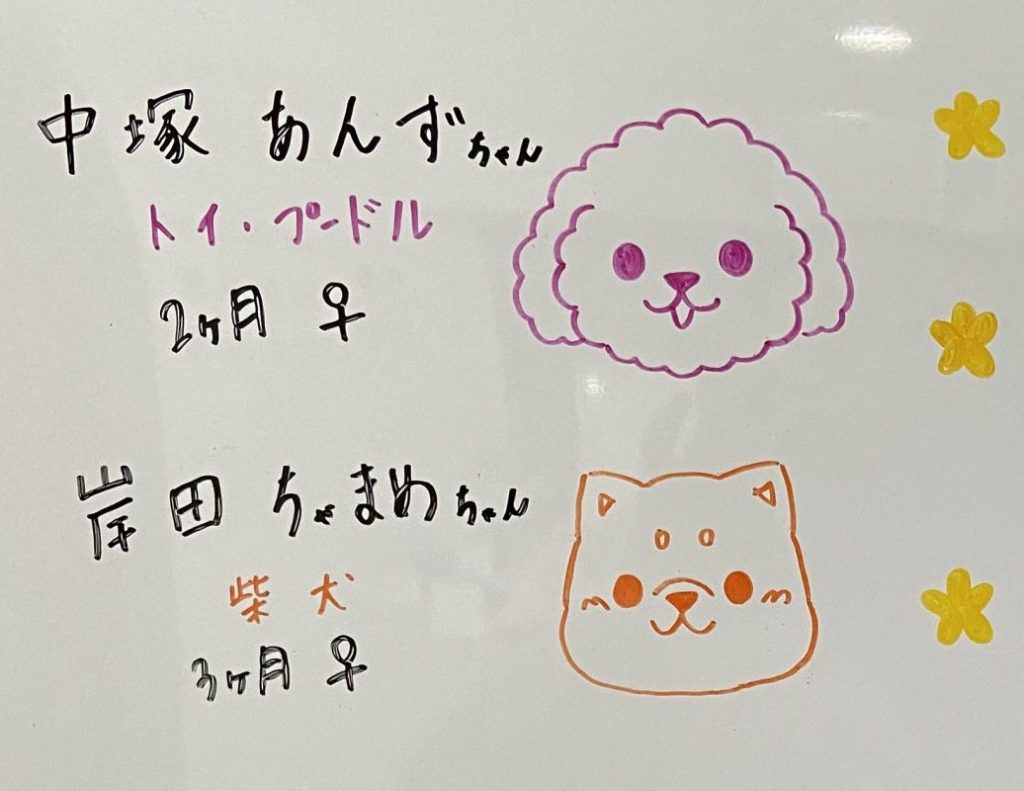 中塚 あんずちゃん
トイ・プードル
2ヶ月 ♀
岸田 ちゃまめちゃん
柴犬
3ヶ月 ♀